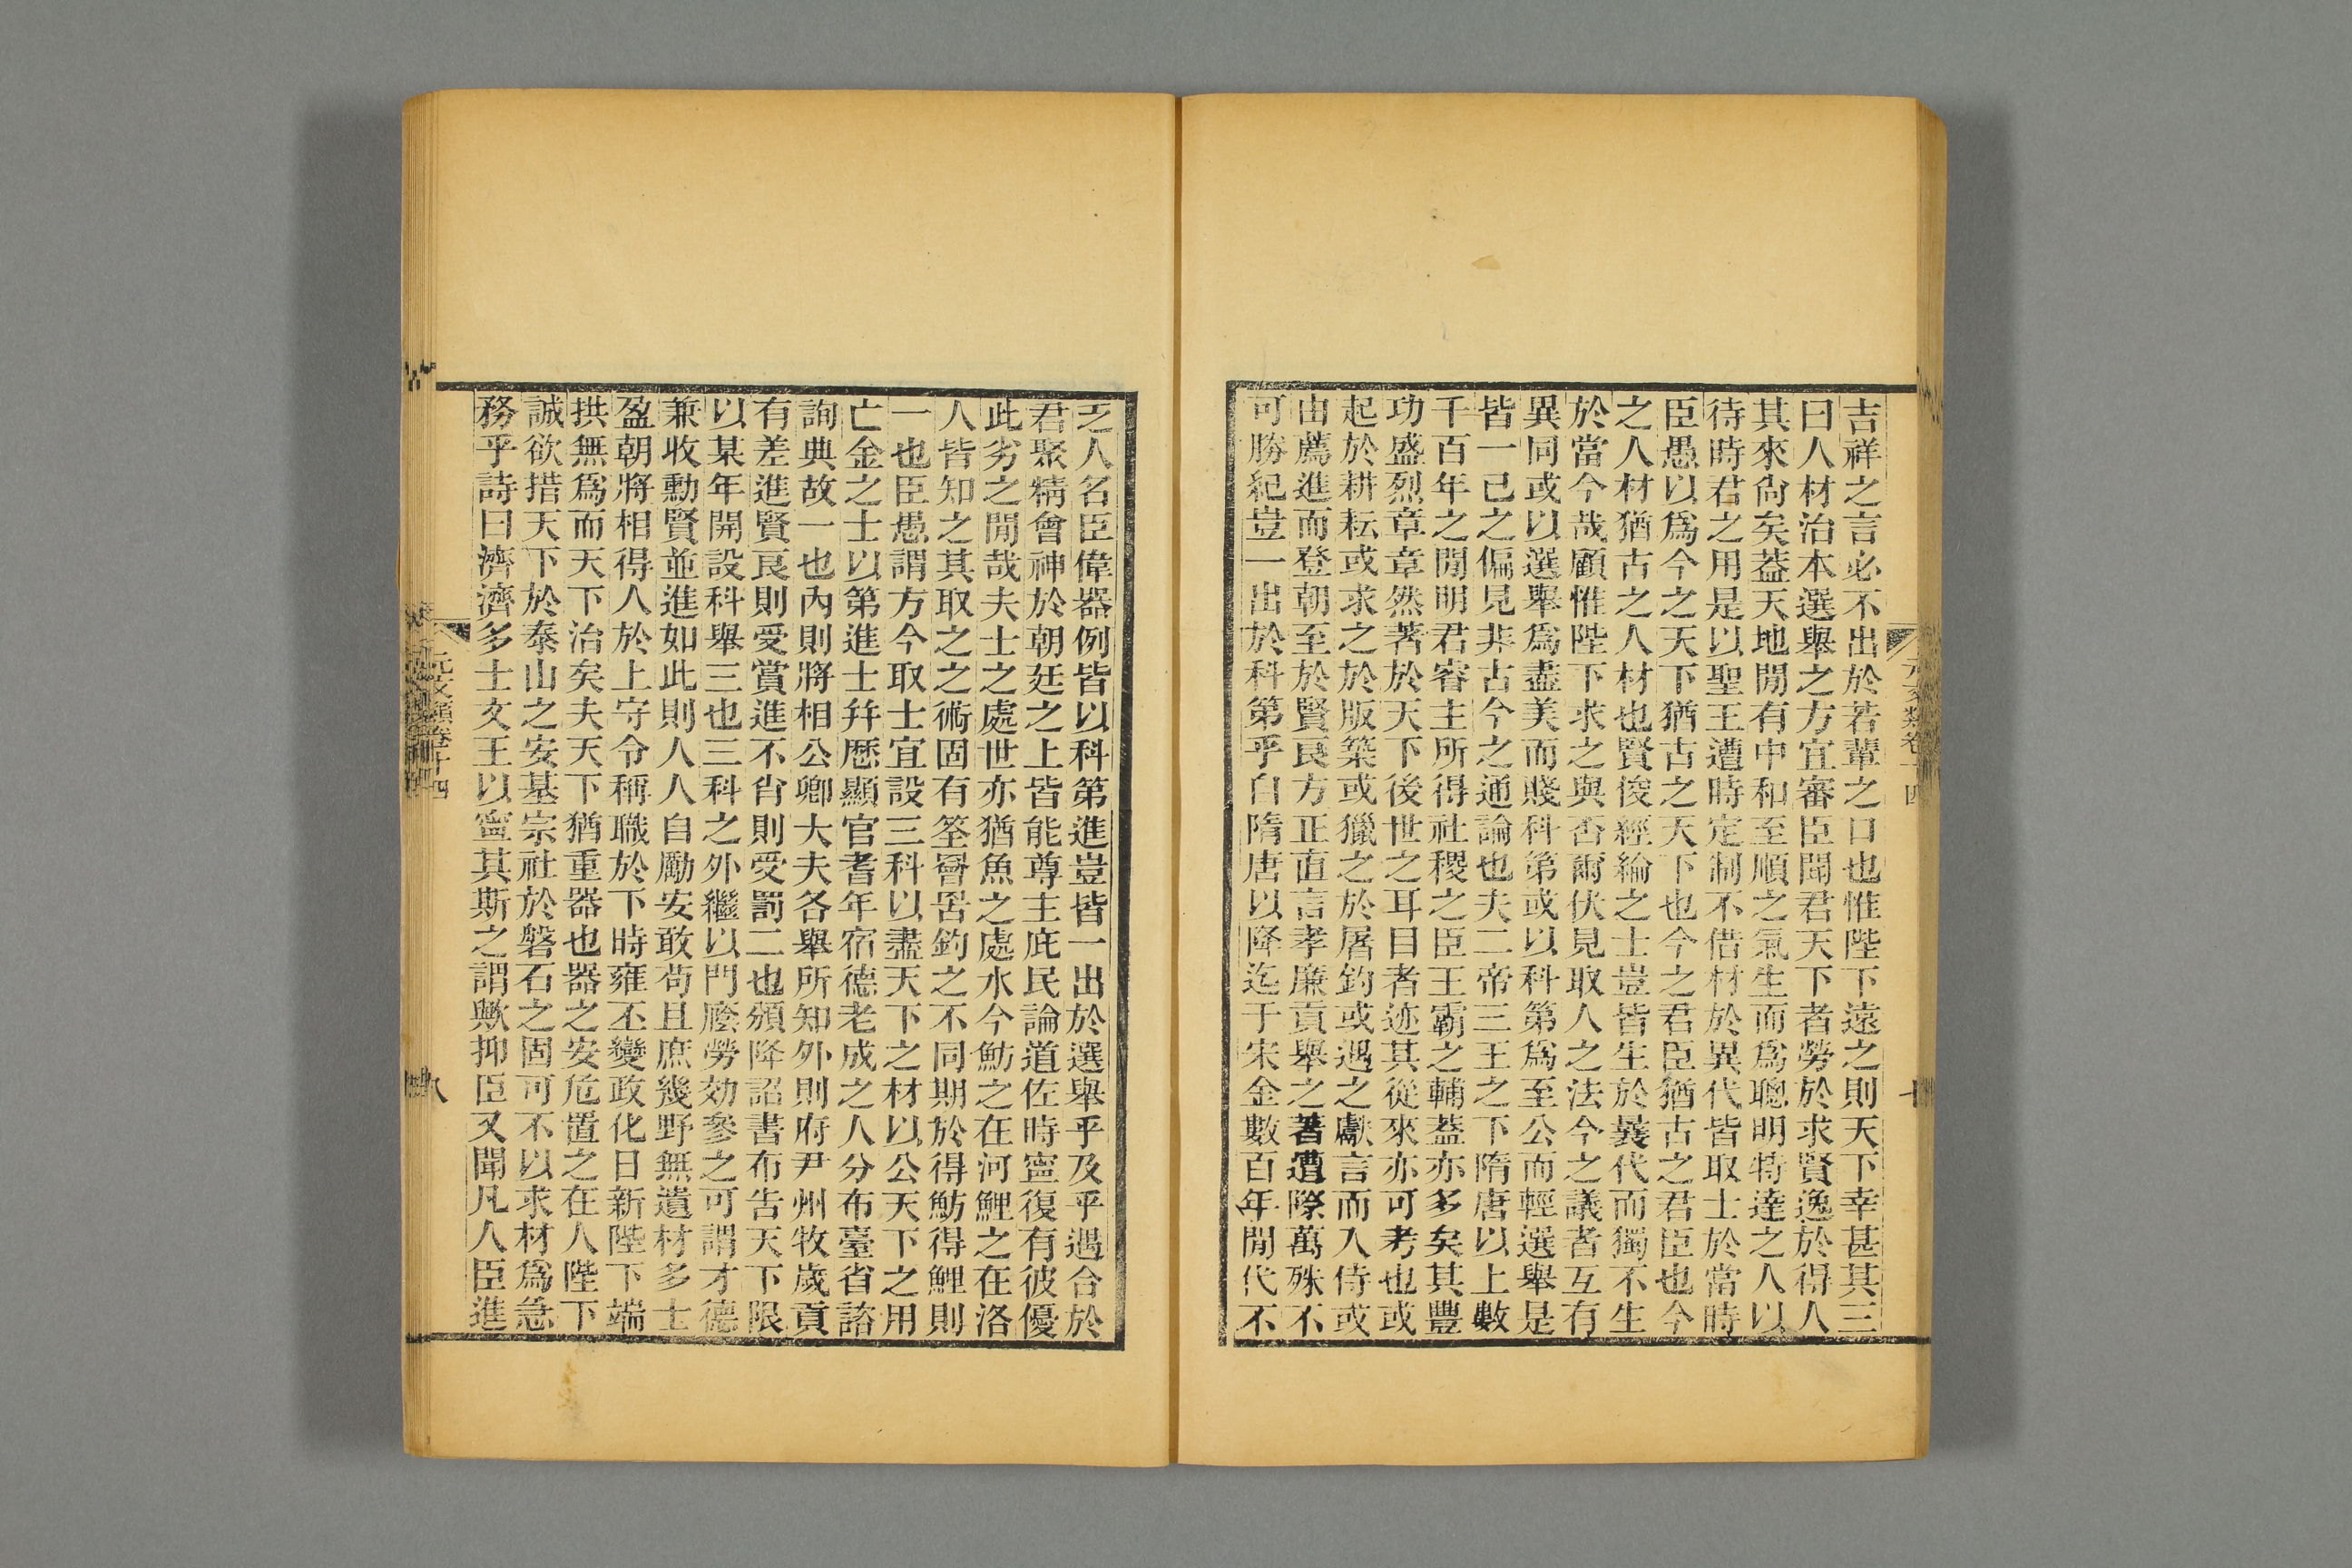 吉祥之言必不出於若輩之口也惟陛下遠之則天下幸甚其三
曰人材治本選舉之方宜審臣聞君天下者勞於求賢逸於得人
其來尙矣葢天地閒有中和至順之氣生而爲聰明特達之人以
待時君之用是以聖王遭時定制不借材於異代皆取士於當時
臣愚以爲今之天下猶古之天下也今之君臣猶古之君臣也今
之人材猶古之人材也賢俊經綸之士豈皆生於曩代而獨不生
於當今哉顧惟陛下求之與否爾伏見取人之法今之議者互有
異同或以選舉爲盡美而賤科第或以科第爲至公而輕選舉是
皆一己之偏見非古今之通論也夫二帝三王之下隋唐以上數
千百年之閒明君睿主所得社稷之臣王霸之輔葢亦多矣其豐
功盛烈章章然著於天下後世之耳目者迹其從來亦可考也或
起於耕耘或求之於版築或獵之於屠釣或遇之獻言而入侍或
由薦進而登朝至於賢良方正直言孝廉貢舉之著遭際萬殊不
可勝紀豈一出於科第乎自隋唐以降迄于宋金數百年閒代不
元文類卷十四
七
乏人名臣偉器例皆以科第進豈皆一出於選舉乎及乎遇合於
君聚精會神於朝廷之上皆能尊主庇民論道佐時寧復有彼優
此劣之閒哉夫士之處世亦猶魚之處水今魴之在河鯉之在洛
人皆知之其取之之術固有筌罾罟釣之不同期於得魴得鯉則
一也臣愚謂方今取士宜設三科以盡天下之材以公天下之用
亡金之士以第進士幷歷顯官耆年宿德老成之人分布臺省諮
詢典故一也內則將相公卿大夫各舉所知外則府尹州牧歲貢
有差進賢良則受賞進不肖則受罰二也頒降詔書布告天下限
以某年開設科舉三也三科之外繼以門廕勞効參之可謂才德
兼收勳賢並進如此則人人自勵安敢苟且庶幾野無遺材多士
盈朝將相得人於上守令稱職於下時雍丕變政化日新陛下端
拱無爲而天下治矣夫天下猶重器也器之安危置之在人陛下
誠欲措天下於泰山之安基宗社於磐石之固可不以求材爲急
務乎詩曰濟濟多士文王以寧其斯之謂歟抑臣又聞凡人臣進
元文類卷十四
八